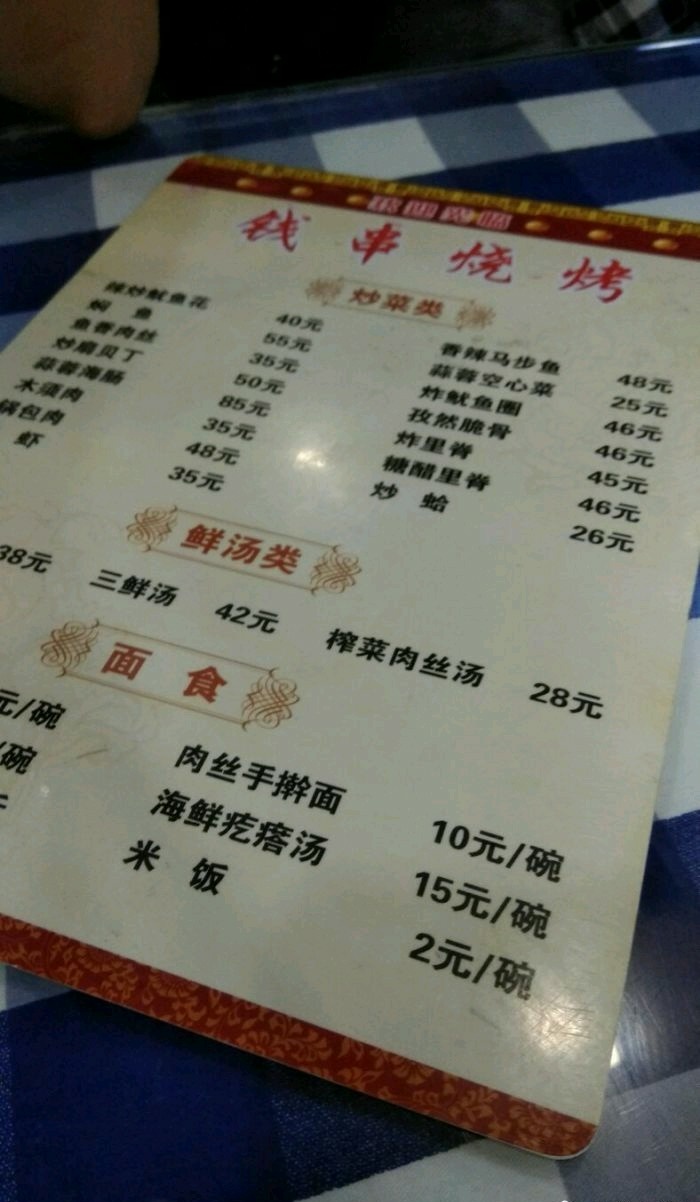 欢迎光临
钱串烧烤
炒菜类
辣炒鱿鱼花 40元
焖 鱼 55元
鱼香肉丝 35元
炒扇贝丁 50元
蒜蓉海肠 85元
木须肉 35元
锅包肉 48元
虾 35元
香辣马步鱼 48元
蒜蓉空心菜 25元
炸鱿鱼圈 46元
孜然脆骨 46元
炸里脊 45元
糖醋里脊 46元
炒 蛤 26元
鲜汤类
38元 三鲜汤 42元 榨菜肉丝汤 28元
面 食
元/碗 肉丝手擀面 10元/碗
/碗 海鲜疙瘩汤 15元/碗
米 饭 2元/碗